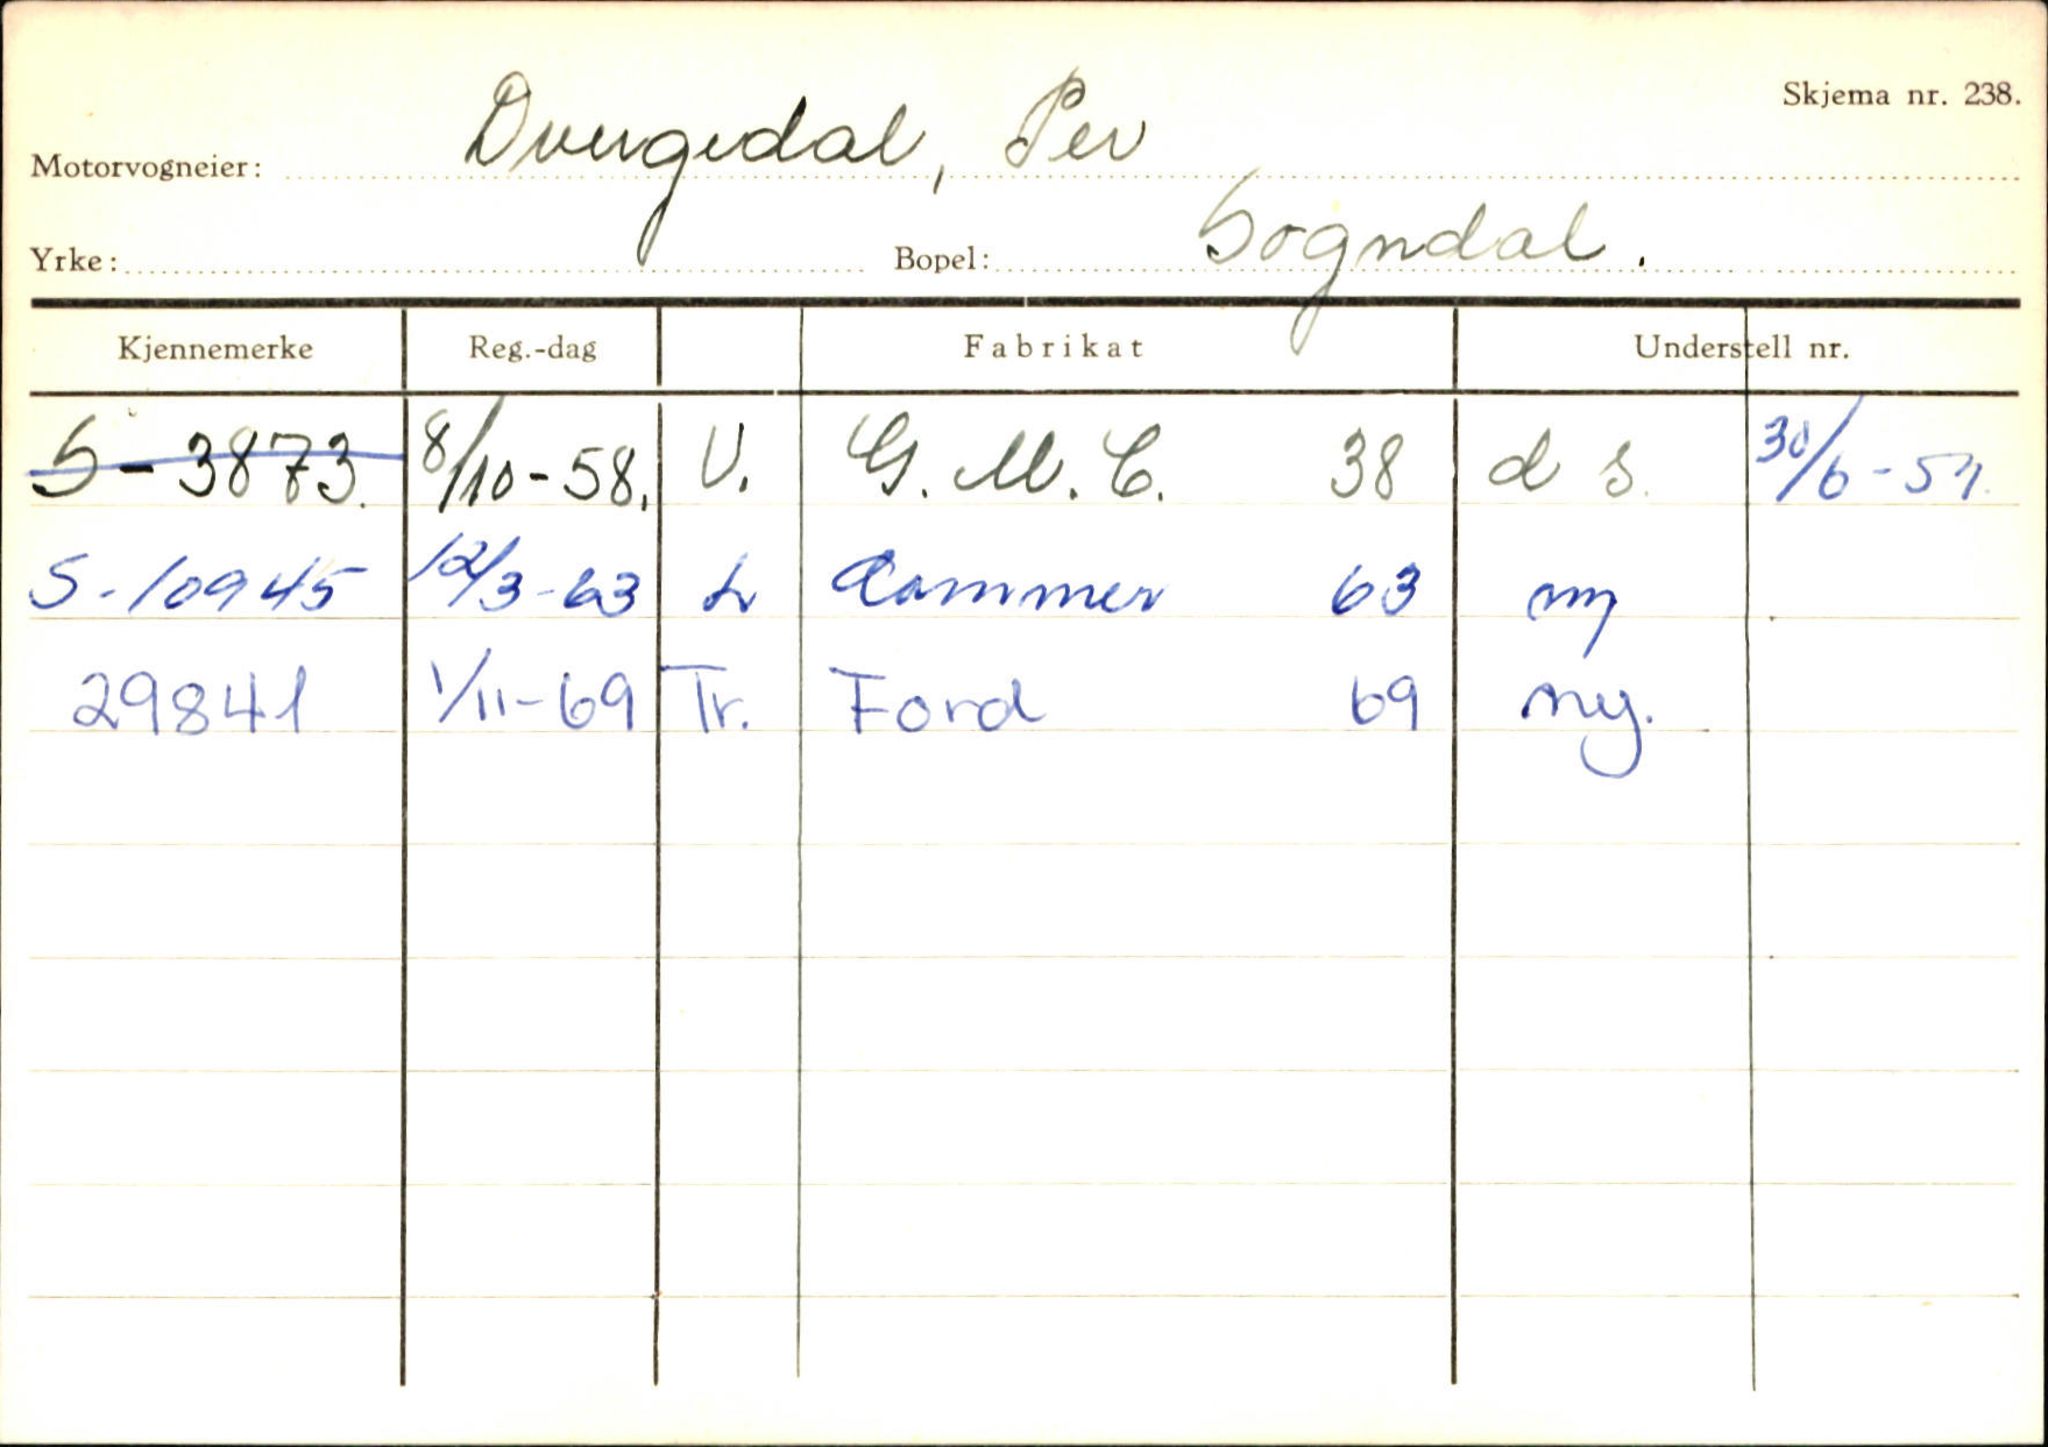 Skjema nr. 238.
Motorvogneier: Dvergedal, Per
Yrke: Bopel: Sogndal.
Kjennemerke Reg.-dag Fabrikat Understell nr.
S-3873. 8/10-58. V. G.M.C. 38 d s. 30/6-59.
S-10945 12/3-63 Lv Commer 63 ny
29841 1/11-69 Tr. Ford 69 ny.